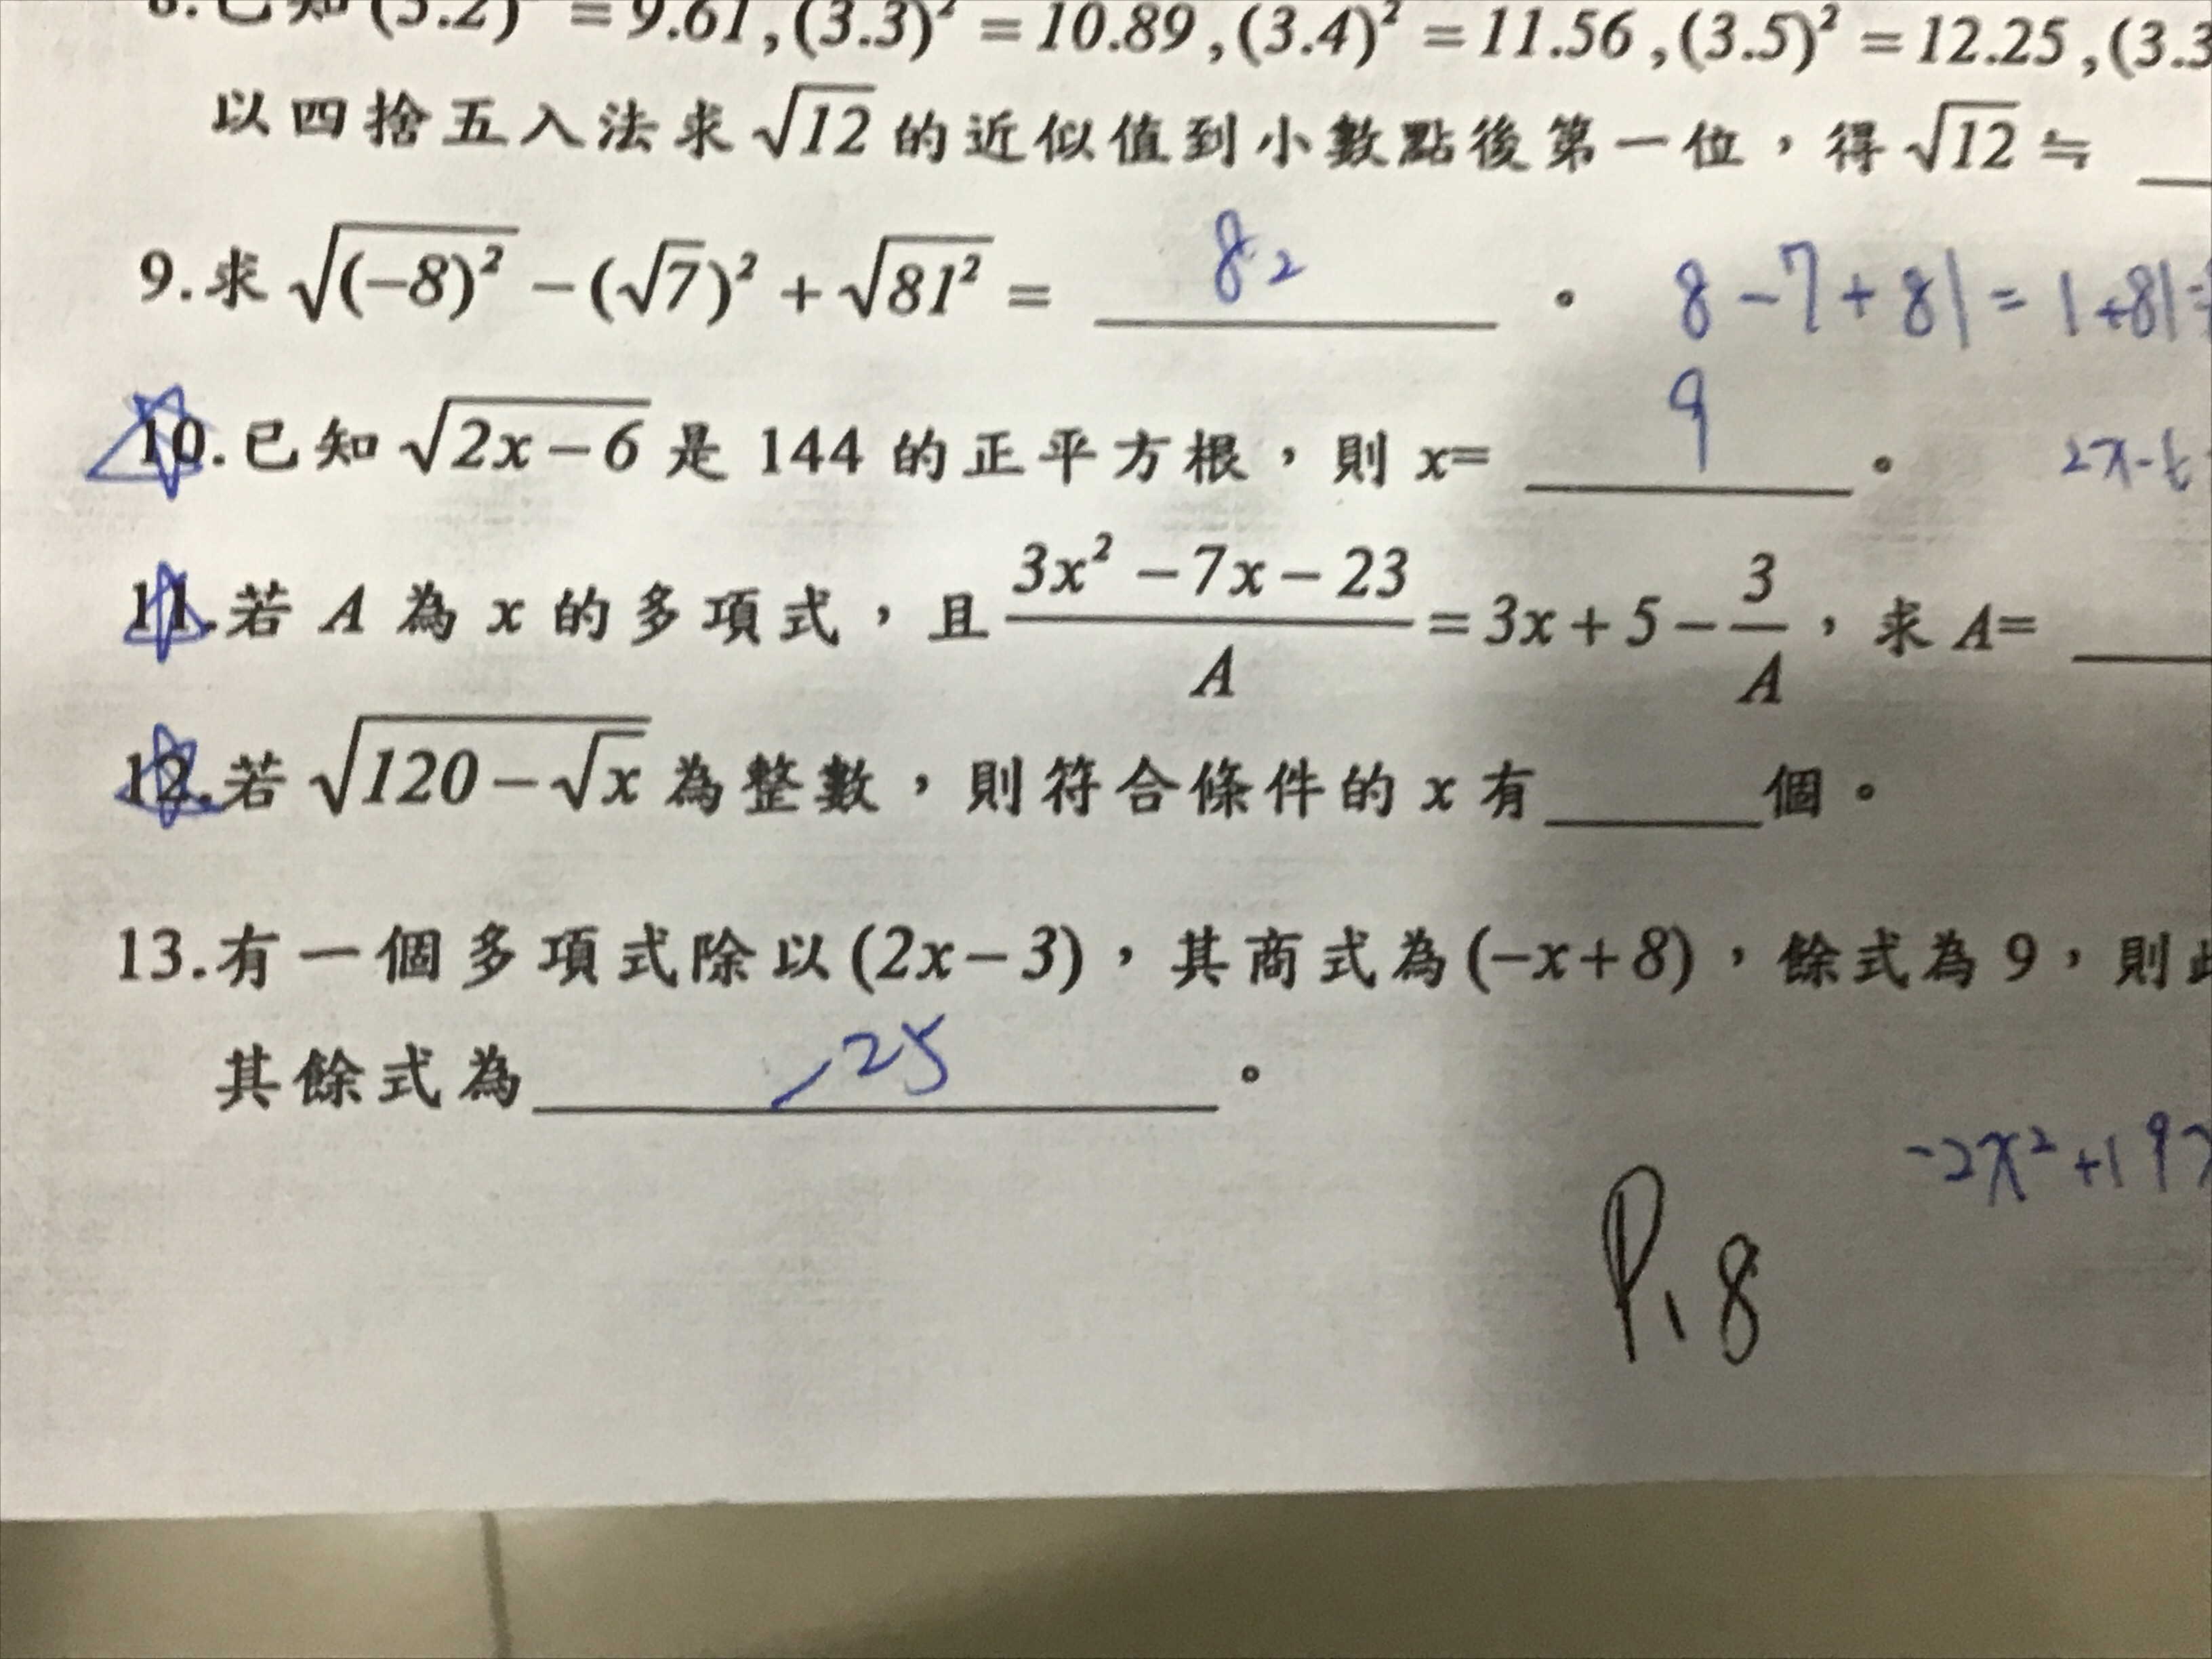 8.已知(3.2)² =9.61,(3.3)² =10.89,(3.4)² =11.56,(3.5)² =12.25,(3.3
以四捨五入法求√12的近似值到小數點後第一位，得√12≒
9.求 √(-8)² -(√7)² + √81² = 82 。 8-7+81=1+81=
10.已知√2x-6是 144 的正平方根，則 x= 9 。 2x-6
11.若 A 為 x 的多項式，且 (3x² -7x-23)/A =3x+5- 3/A，求 A=
12.若 √120-√x 為整數，則符合條件的 x 有____個。
13.有一個多項式除以(2x-3)，其商式為(-x+8)，餘式為 9，則
其餘式為 -25 。
-2x²+19x
P.8